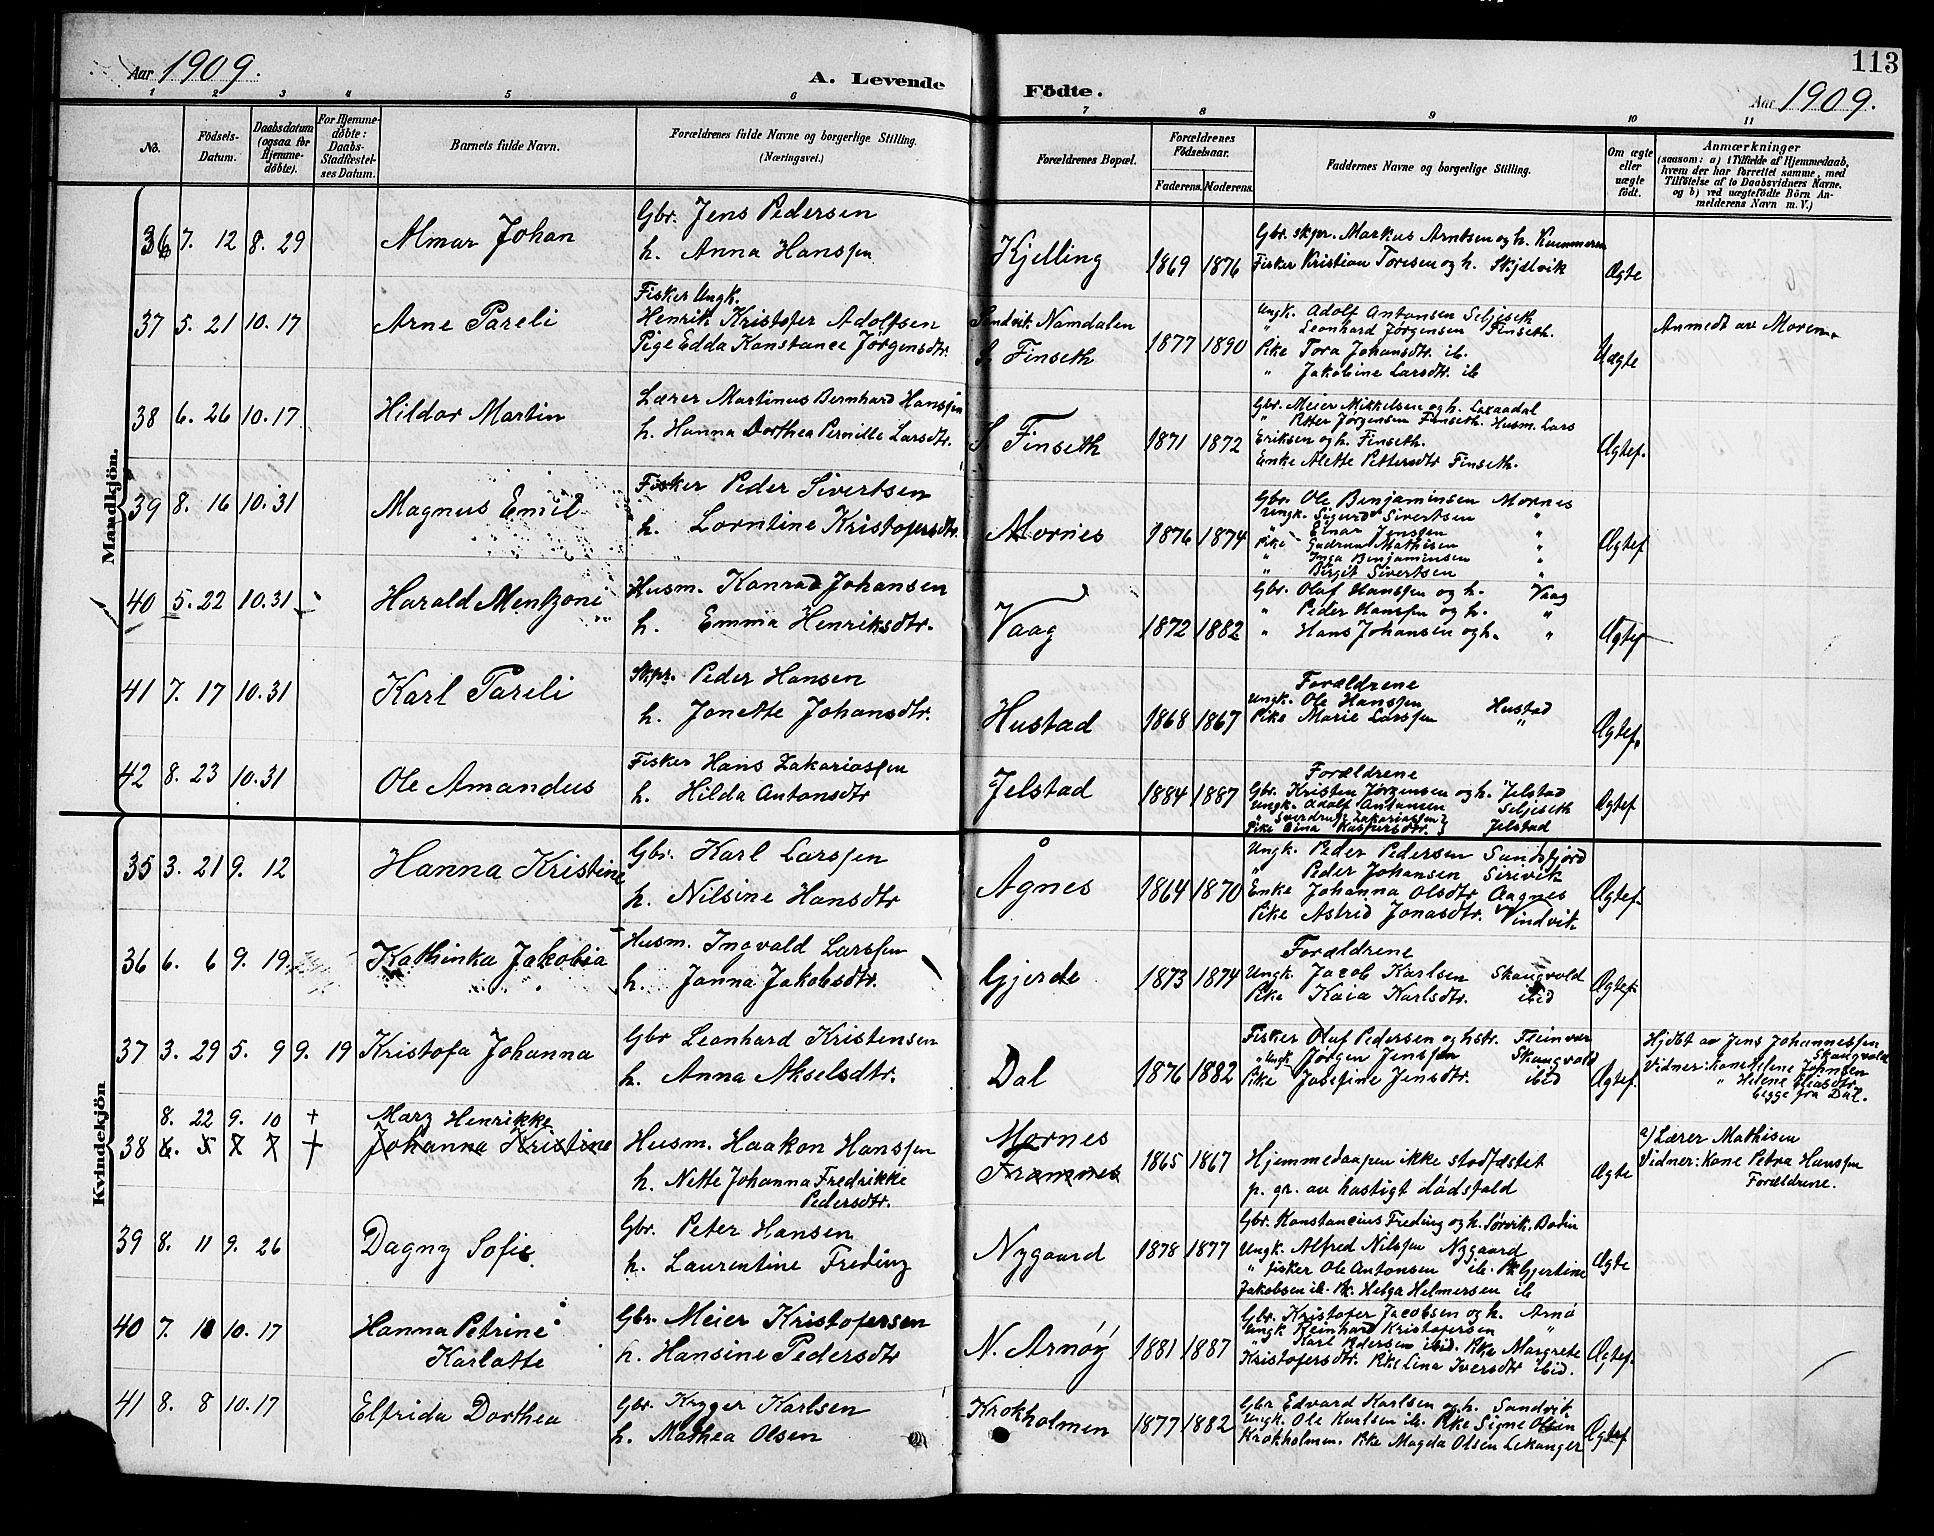 113
Aar 1909.
A. Levende Födte.
Aar 1909.
1 2 3 4 5 6 7 8 9 10 11
No. Födsels-Datum. Daabsdatum (ogsaa for Hjemme-döbte). For Hjemme-döbte: Daabs-Stadfæstel-ses Datum. Barnets fulde Navn. Forældrenes fulde Navne og borgerlige Stilling. (Næringsvei.) Forældrenes Bopæl. Forældrenes Födselsaar. Faderens. Moderens. Faddernes Navne og borgerlige Stilling. Om ægte eller uægte födt. Anmærkninger (saasom: a) i Tilfælde af Hjemmedaab, hvem der har forrettet samme, med Tilföielse af to Daabsvidners Navne. og b) ved uægtefödte Börn An-melderens Navn m. V.)
Mandkjön.
36 7. 12 8. 29 Almar Johan
Gbr. Jens Pedersen
h. Anna Hanssen
Kjelling 1869 1876
Gbr. skpr. Markus Arntsen og h.
Fisker Kristian Toresen og h. Skjelvik
Ægte
37 5. 21 10. 17 Arne Pareli
Fisker Ungk.
Henrik Kristofer Adolfsen
Pige Edda Konstance Jørgensdtr.
Sandvik Namdalen
S. Finseth 1877 1890
Ungk. Adolf Antonsen Seljeseth
" Leonhard Jørgensen Finseth.
Pike Tora Johansdtr. ib.
" Jakobine Larsdtr. ib
Uægte
Anmedt av Moren.
38 6. 26 10. 17 Hildor Martin
Lærer Martinus Bernhard Hanssen
h. Hanna Dorthea Pernille Larsdtr.
S. Finseth 1871 1872
Gbr. Meier Mikkelsen og h. Laxaadal
" Petter Jørgensen Finseth. Husm. Lars
Eriksen og h. Finseth.
Enke Alette Pettersdtr Finseth.
Ægtef.
39 8. 16 10. 31 Magnus Emil
Fisker Peder Sivertsen
h. Lorntine Kristofersdtr.
Mornes 1876 1874
Gbr. Ole Benjaminsen Mornes
Ungk. Sigurd Sivertsen "
" Einar Jenssen "
Pike Gudrun Mathisen "
" Inga Benjaminsen "
" Birgit Sivertsen "
Ægtef
40 5. 22 10. 31 Harald Mentzoni
Husm. Konrad Johansen
h. Emma Henriksdtr.
Vaag 1872 1882
Gbr. Olaf Hanssen og h. Vaag
" Peder Hanssen og h. "
" Hans Johansen og h. "
Ægtef
41 7. 17 10. 31 Karl Pareli
Skpr. Peder Hansen
h. Jonette Johansdtr.
Hustad 1868 1867
Forældrene
Ungk. Ole Hanssen Hustad
Pike Marie Larssen "
Ægtef.
42 8. 23 10. 31 Ole Amandus
Fisker Hans Zakariassen
h. Hilda Antonsdtr
Jelstad 1884 1887
Forældrene
Gbr. Kristen Jørgensen og h. Jelstad
Ungk. Adolf Antonsen Seljeseth
" Sverdrup Zakariassen
Pike Dina Kaspersdtr. Jelstad
Ægtef
Kvindekjön
35 3. 21 9. 12 Hanna Kristine
Gbr. Karl Larssen
h. Nilsine Hansdtr
Ågnes 1864 1870
Ungk. Peder Pedersen Sundsfjord
" Peder Johansen Sirivik
Enke Johanna Olsdtr Aagnes
Pike Astrid Jonasdtr. Vindvik
Ægtef.
36 6. 6 9. 19 Kathinka Jakobia
Husm. Ingvald Larssen
h. Janna Jakobsdtr.
Gjerde 1873 1874
Forældrene
Ungk. Jacob Karlsen Skaugvold
Pike Kaia Karlsdtr. ibid
Ægtef.
37 3. 29 5. 9 9. 19 Kristofa Johanna
Gbr Leonhard Kristensen
h. Anna Akselsdtr.
Dal 1876 1882
Fisker Olaf Pedersen og hstr. Fleinvær
" Ungk Jørgen Jenssen Skaugvold
Pike Josefine Jensdtr. ibid
Ægtef
Hjdbt av Jens Johannessen
Skaugvold
Vidner: Kone Helene Johnsen
" Helene Eliasdtr
begge fra Dal.
8. 22 9. 10 + Mary Henrikke
38 6. 5 X X + Johanna Kristine
Husm. Haakon Hanssen
h. Nette Johanna Fredrikke
Pedersdtr.
Mornes
Framnes 1865 1867
Hjemmedaapen ikke stadfæstet
p. gr. av hastigt dødsfald
Ægte
a) Lærer Mathisen
Vidner: Kone Petra Hanssen
Forældrene.
39 8. 11 9. 26 Dagny Sofie
Gbr. Peter Hansen
h. Laurentine Freding
Nygaard 1878 1877
Gbr. Konstancius Freding og h. Sørvik. Bodin
Ungk. Alfred Nilssen Nygaard
" fisker Ole Antonsen ib. Pk Gjertine
Jakobsen ib. Pk. Helga Helmersen ib
Ægte
40 7. 10 10. 17 Hanna Petrine
Karlotte
Gbr. Meier Kristofersen
h. Hansine Pedersdtr
N. Arnøy 1881 1887
Gbr. Kristofer Jacobsen og h. Arnø
Ungk Reinhard Kristofersen "
" Karl Pedersen ibid. Pke Margrete
Kristofersdtr. Pke Lina Iversdtr ibid.
Ægtef.
41 8. 8 10. 17 Elfrida Dorthea
Gbr. Kryger Karlsen
h. Mathea Olsen
Krokholmen 1877 1882
Gbr Edvard Karlsen og h. Sandvik
Ungk. Ole Karlsen ib. Pke Signe Olsen
Krokholmen. Pke Magda Olsen Lekanger
Ægtef